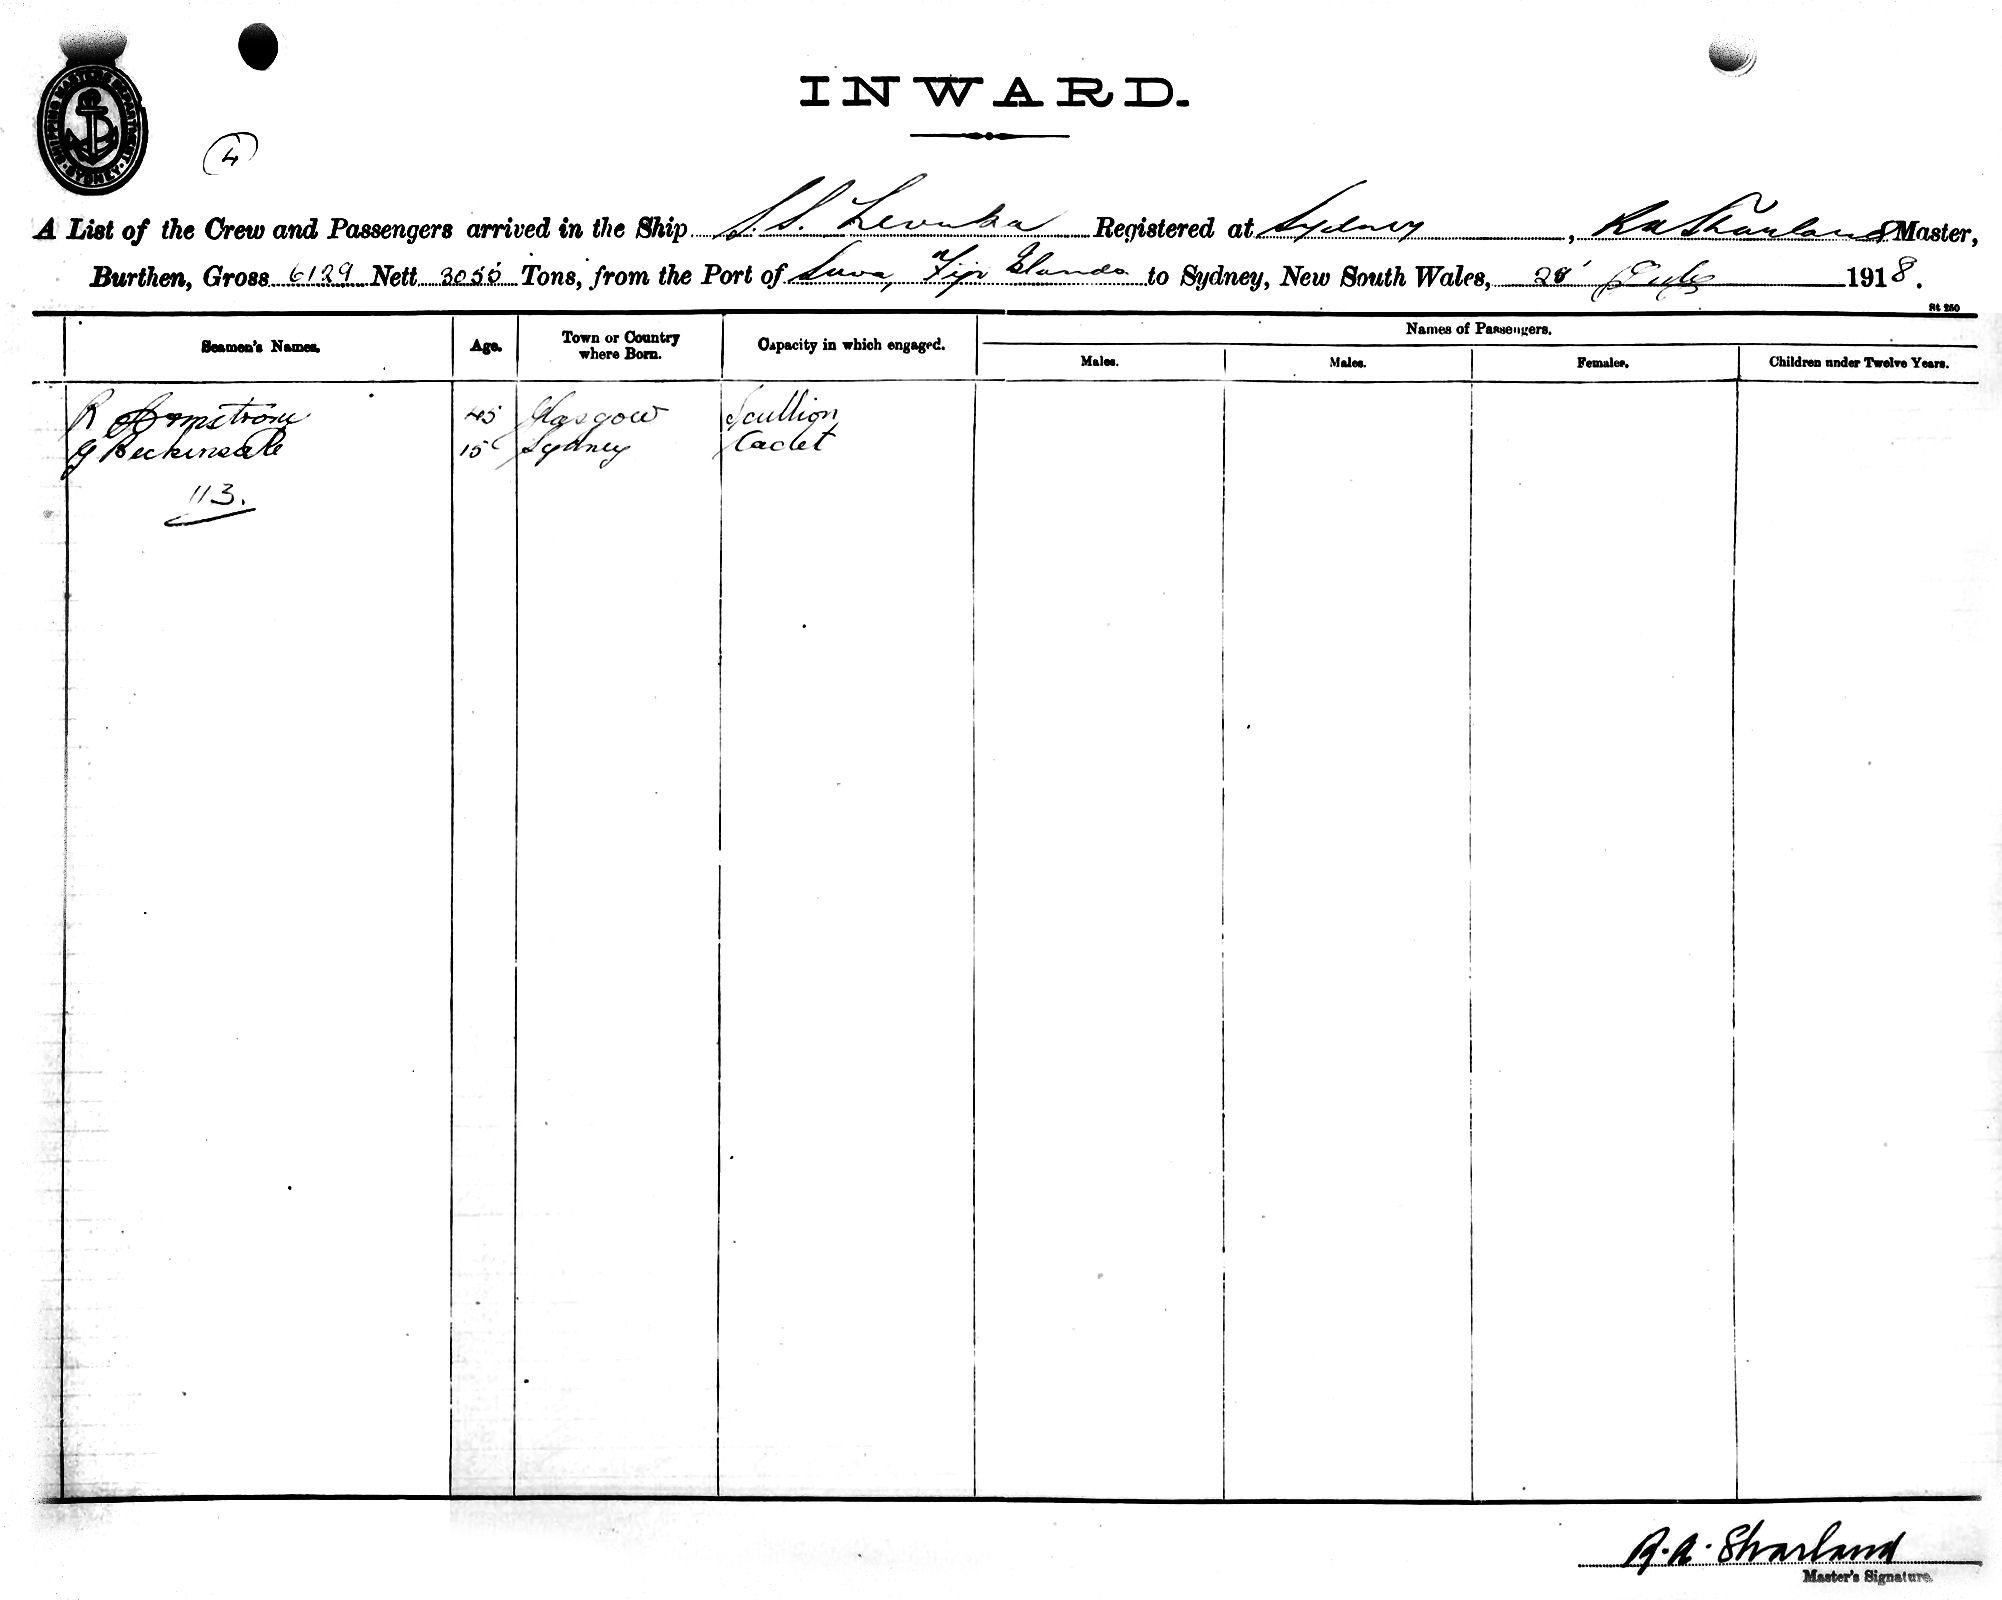 SHIPPING MASTER'S DEPARTMENT
SYDNEY
INWARD.
4
A List of the Crew and Passengers arrived in the Ship S.S. Levuka Registered at Sydney, R A Sharland Master,
Burthen, Gross 6129 Nett 3055 Tons, from the Port of Suva, Fiji Islands to Sydney, New South Wales, 28 July 1918.
St 250
Seamen's Names. Age. Town or Country where Born. Capacity in which engaged. Names of Passengers.
Males. Males. Females. Children under Twelve Years.
R Armstrong 45 Glasgow Scullion
G Beckinsale 15 Sydney Cadet
113.
R.A. Sharland
Master's Signature.